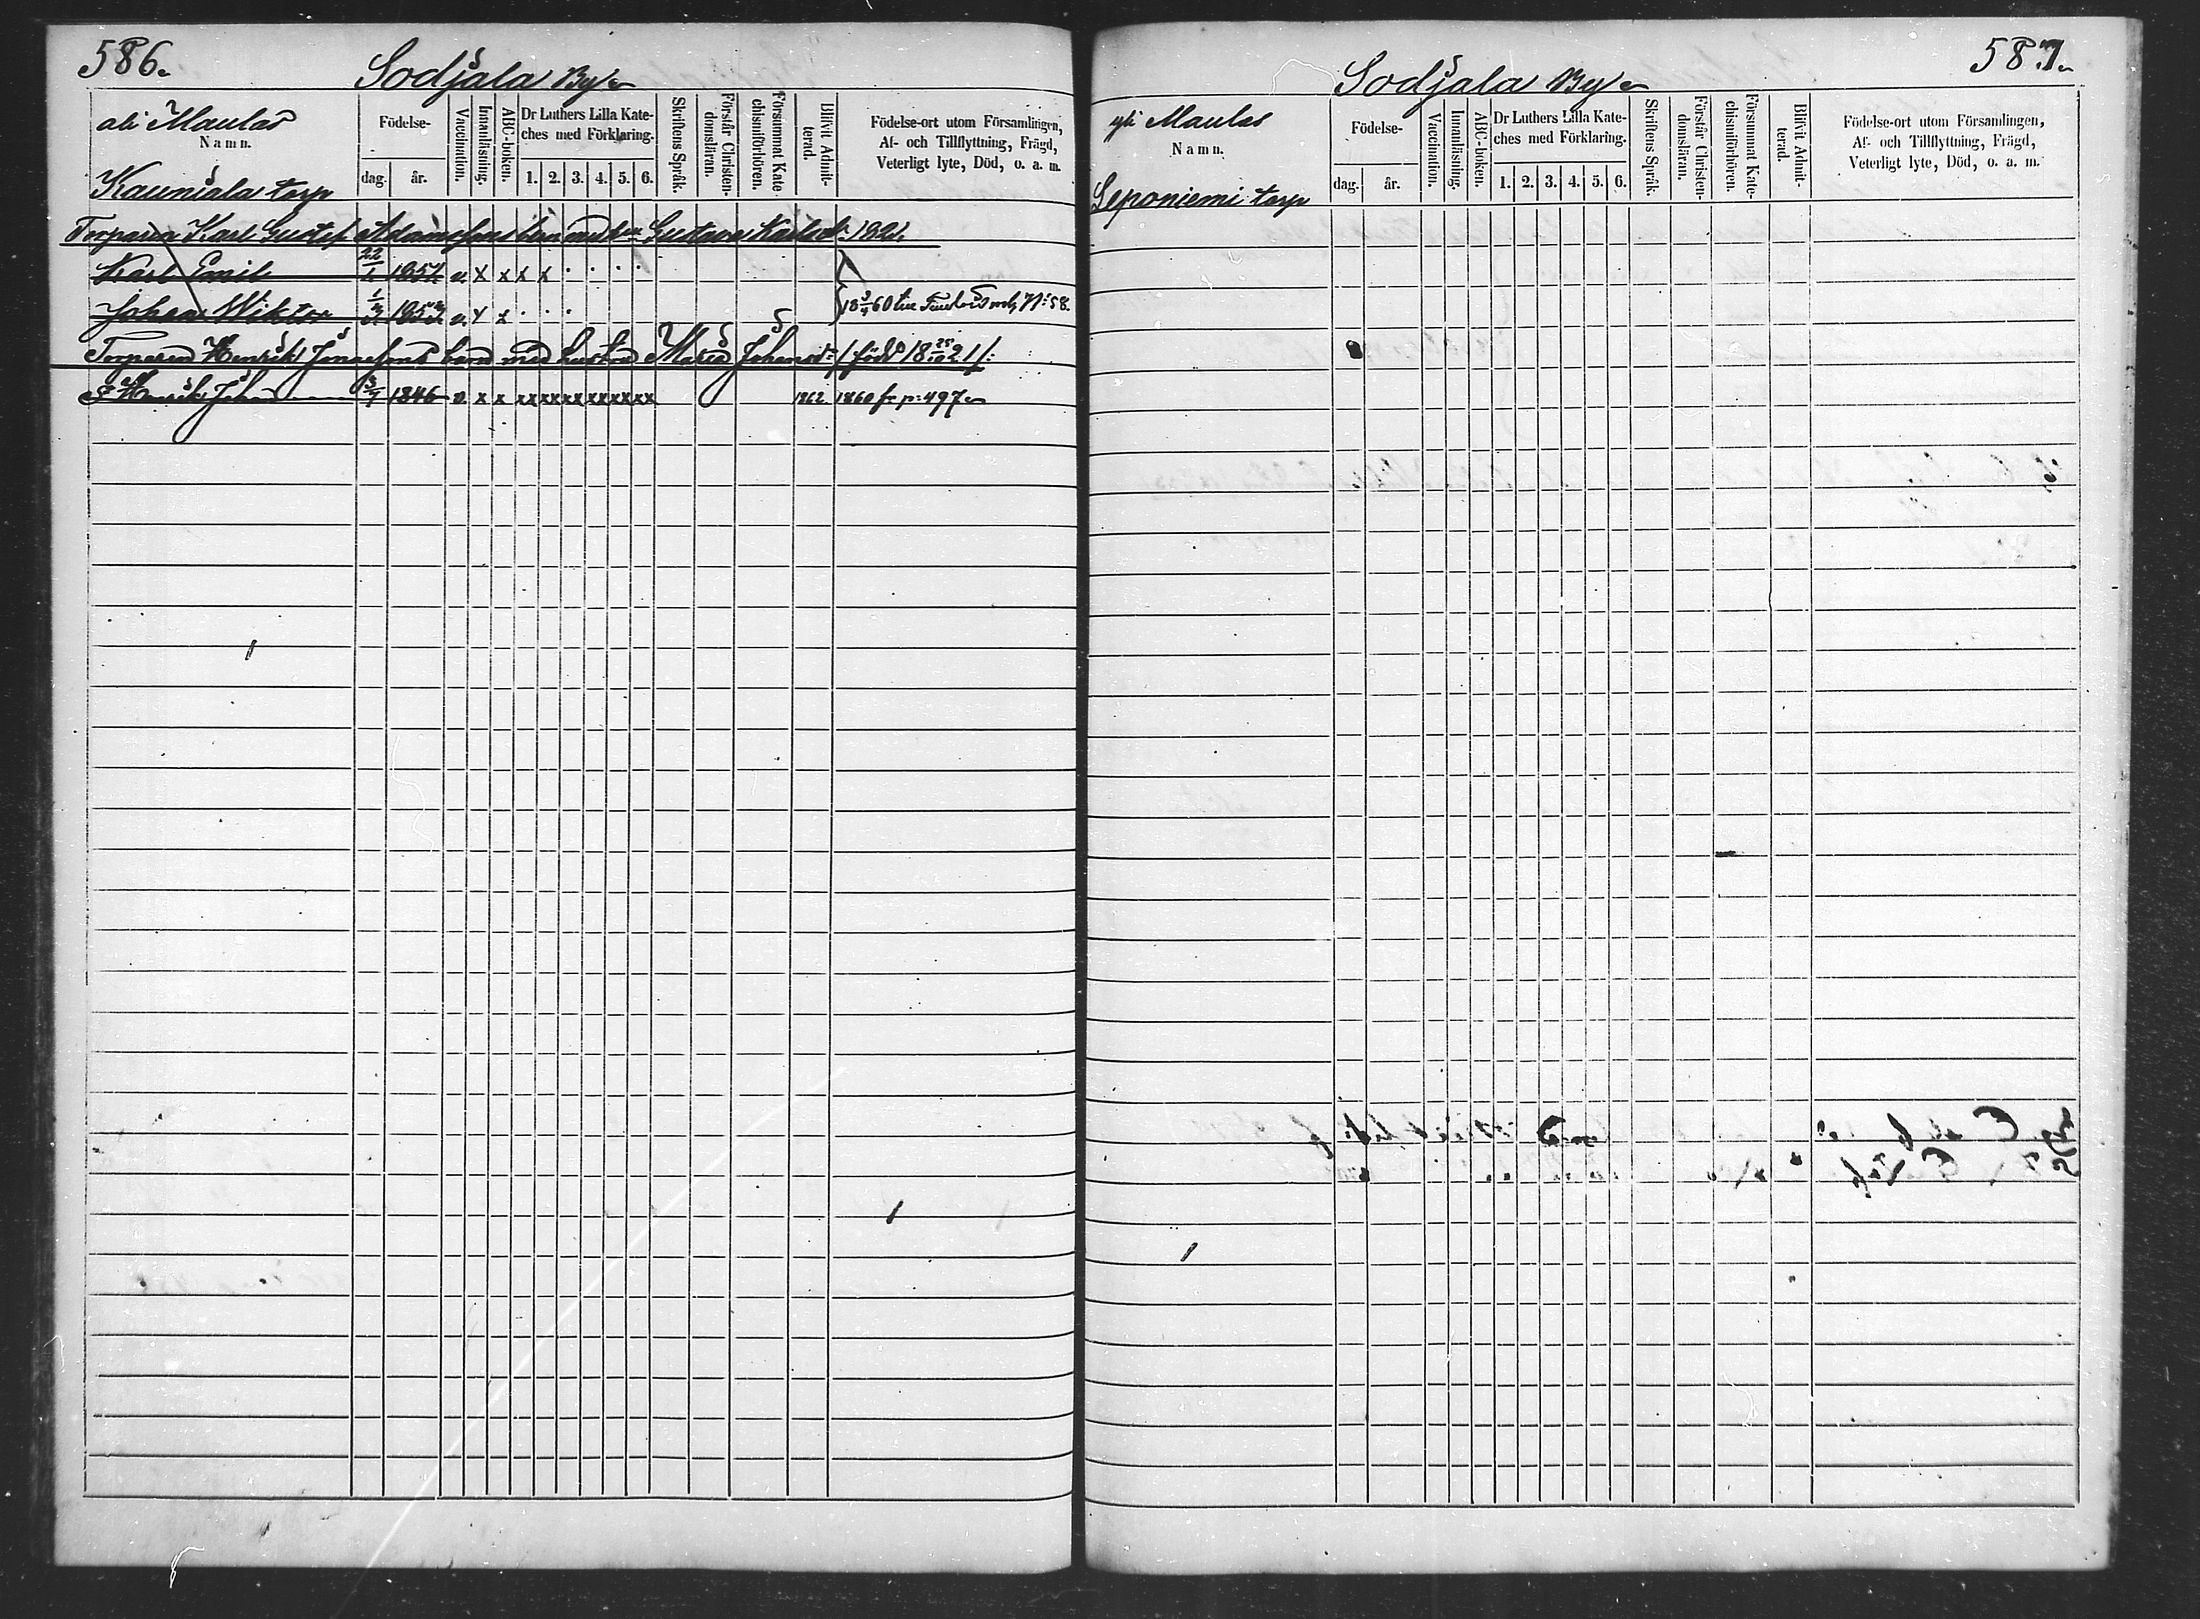 586.
Sodjala By
ali Maulas
Namn.
Kauniala torp
Födelse-
dag.
år.
Vaccination.
Innanläsning.
ABC-boken.
Dr Luthers Lilla Kate-
ches med Förklaring.
1. 2. 3. 4. 5. 6.
Skriftens Språk.
Förstår Christen-
domsläran.
Försummat Kate-
chismiförhören.
Blivit Admit-
terad.
Födelse-ort utom Församlingen,
Af- och Tillflyttning, Frägd,
Veterligt lyte, Död, o. a. m.
Torparen Karl Gustaf Adamssons barn med Gustava Karlsdr 1821.
Karl Emil 22/1 1851 v. x x x x
Johan Wiktor 1853 v. x x
60 till p: 58.
Torparen Henrik Jonassons barn med hustru Maria Johansdr /: född 18 25/10 21 /:
S Henrik Johan 3/7 1846 v. x x xx xx xx xx xx xx 1862 1860 fr. p: 497
587.
Sodjala By
yli Maulas
Namn.
Leponiemi torp
Födelse-
dag.
år.
Vaccination.
Innanläsning.
ABC-boken.
Dr Luthers Lilla Kate-
ches med Förklaring.
1. 2. 3. 4. 5. 6.
Skriftens Språk.
Förstår Christen-
domsläran.
Försummat Kate-
chismiförhören.
Blivit Admit-
terad.
Födelse-ort utom Församlingen,
Af- och Tillflyttning, Frägd,
Veterligt lyte, Död, o. a. m.